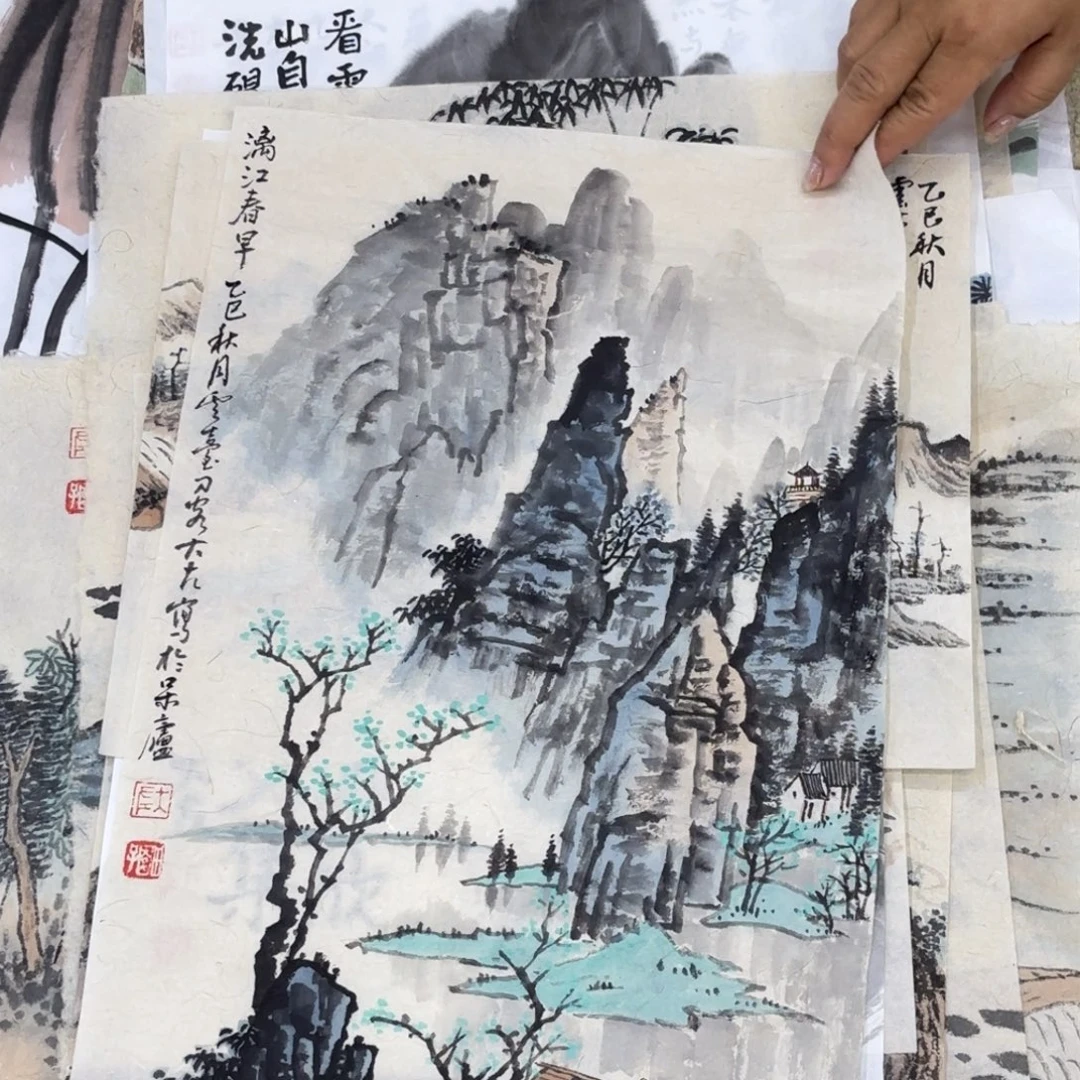 看雲
山自
洗硯
漓江春早 乙巳秋月雲臺刀客大左寫於呆廬
乙巳秋月
雲